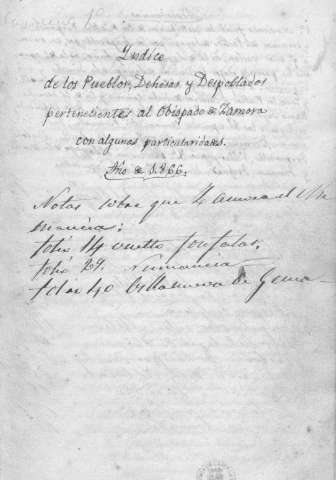 Yndice
de los Pueblos, Dehesas y Despoblados
pertenecientes al Obispado de Zamora
con algunas particularidades.
Año de 1866.
Notas sobre que Zamora es Nu
mancia:
folio 14 vuelto
folio 29. Numancia
folio 40 Villanueva de